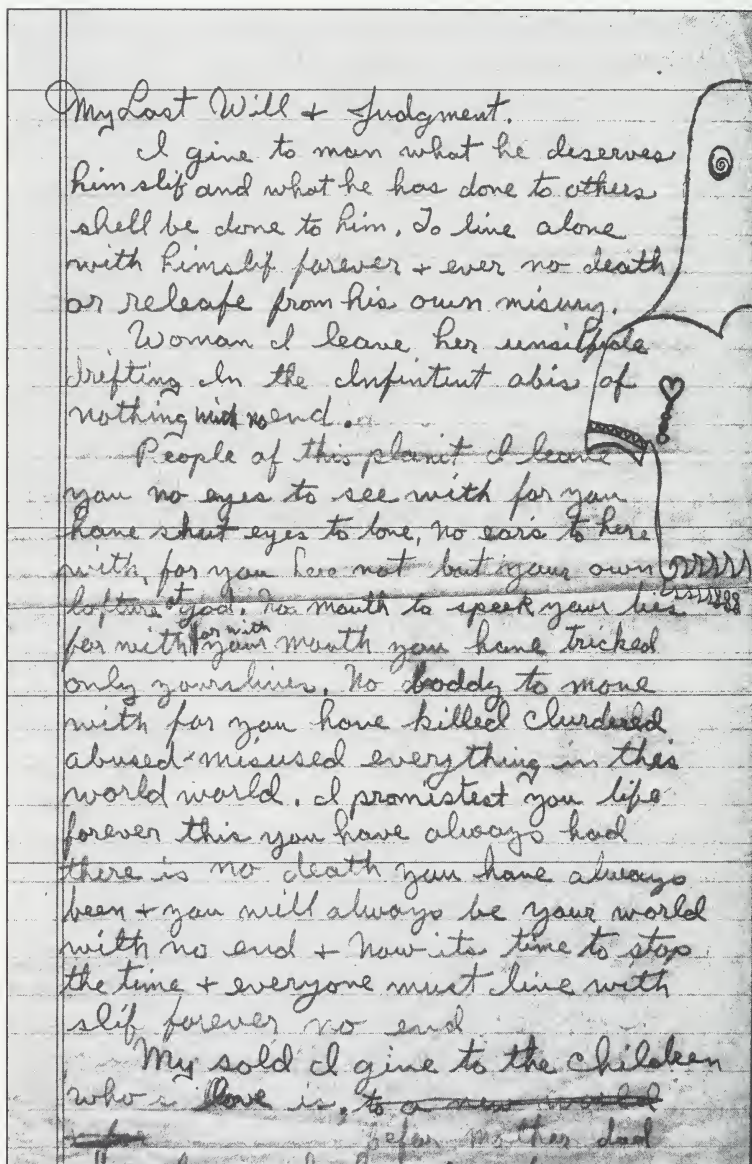 My Last Will + Judgment.
I give to man what he deserves
him slif and what he has done to others
shell be done to him. To live alone
with himslif forever + ever no death
or releafe from his own misury.
Woman I leave her unsilfale
drifting In the Infintent abis of
nothing with no end.
People of this planit I leave
you no eyes to see with for you
have shut eyes to love, no ears to here
with, for you here not but your own
at god. no mouth to speek your lies
for with for with your mouth you have tricked
only yourslives. No boddy to move
with for you have killed
abused + misused everything in this
world world. I promistest you life
forever this you have always had
there is no death you have always
been + you will always be your world
with no end + now its time to stop
the time + everyone must live with
slif forever no end
My sold I give to the children
who's love is, to a new world
mother dad